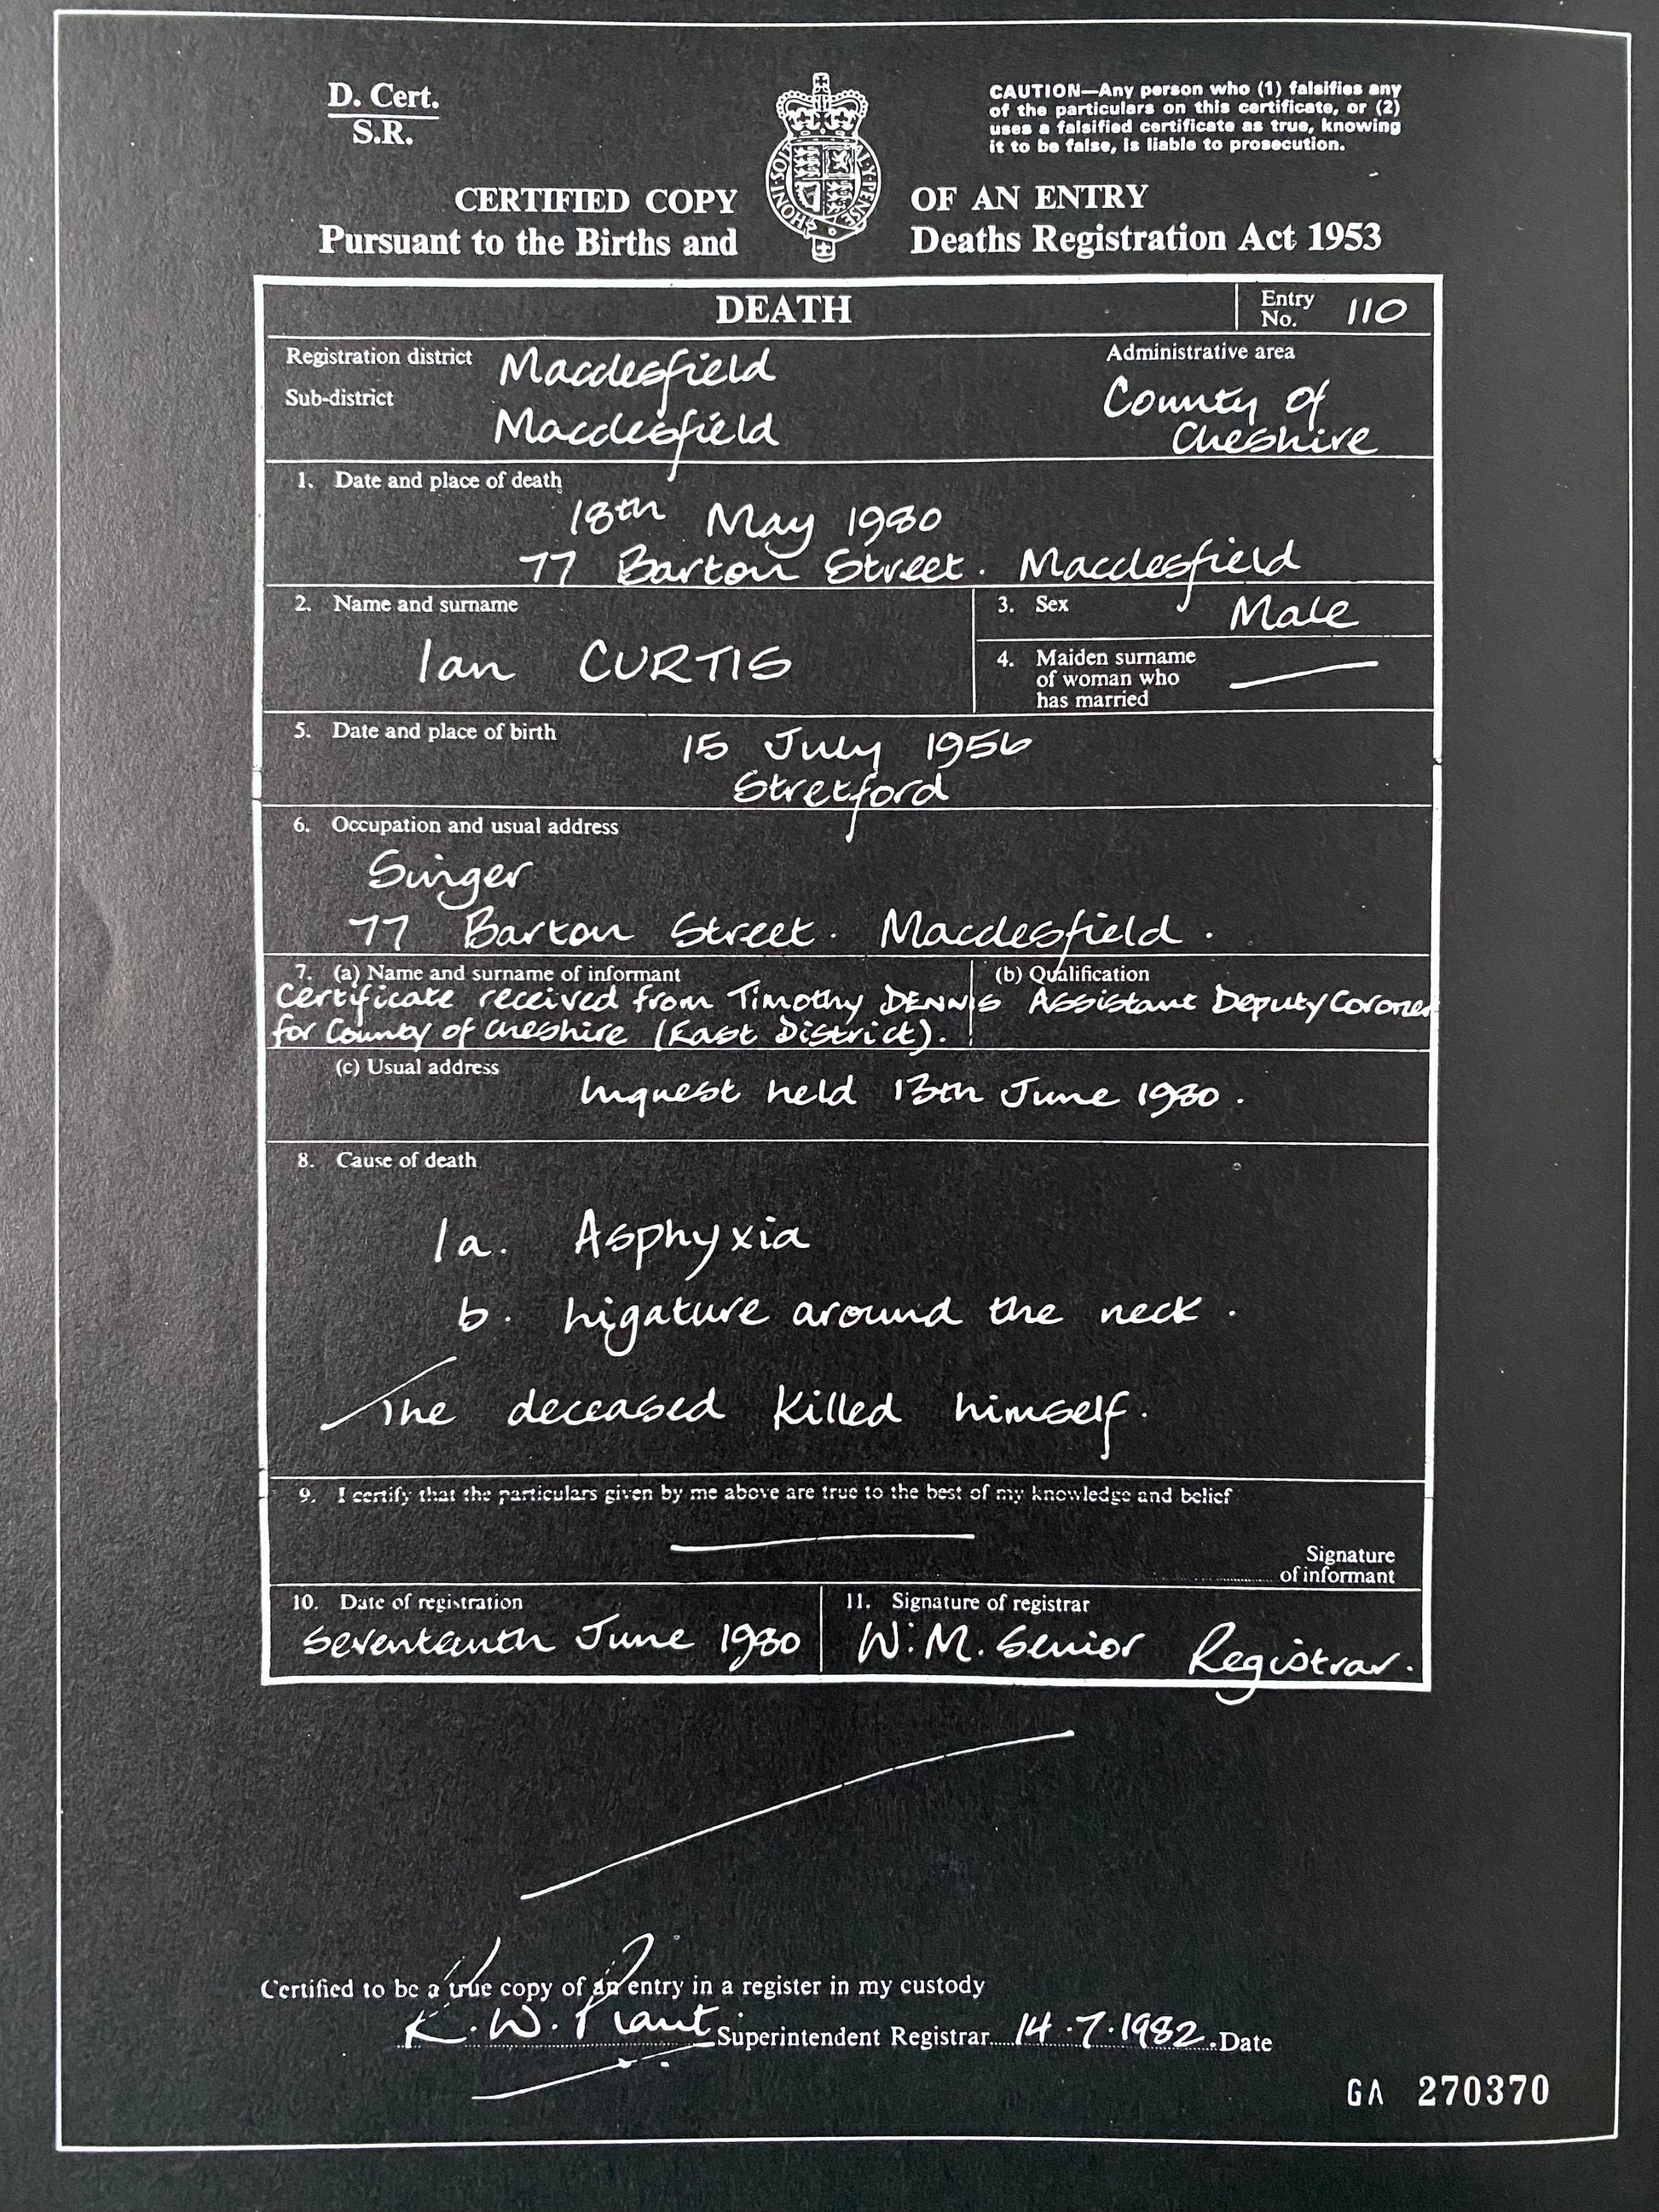 D. Cert.
S.R.
CAUTION—Any person who (1) falsifies any
of the particulars on this certificate, or (2)
uses a falsified certificate as true, knowing
it to be false, is liable to prosecution.
CERTIFIED COPY OF AN ENTRY
Pursuant to the Births and Deaths Registration Act 1953
HONI·SOI L·Y·PENSE
DEATH
Entry No. 110
Registration district Macclesfield
Sub-district Macclesfield
Administrative area
County of
Cheshire
1. Date and place of death
18th May 1980
77 Barton Street. Macclesfield
2. Name and surname
Ian CURTIS
3. Sex Male
4. Maiden surname
of woman who
has married
5. Date and place of birth
15 July 1956
Stretford
6. Occupation and usual address
Singer
77 Barton Street. Macclesfield.
7. (a) Name and surname of informant (b) Qualification
Certificate received from Timothy DENNIS Assistant Deputy Coroner
for County of Cheshire (East District).
(c) Usual address
Inquest held 13th June 1980.
8. Cause of death
1a. Asphyxia
b. Ligature around the neck.
The deceased killed himself.
9. I certify that the particulars given by me above are true to the best of my knowledge and belief
Signature
of informant
10. Date of registration
Seventeenth June 1980
11. Signature of registrar
W. M. Senior Registrar.
Certified to be a true copy of an entry in a register in my custody
K. W. Plant Superintendent Registrar 14.7.1982. Date
GA 270370